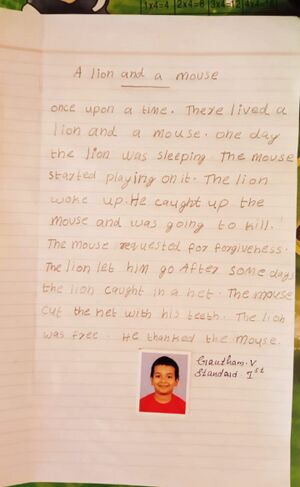 1x4=4 2x4=8 3x4=12 4x4=16
A lion and a mouse
once upon a time. There lived a
lion and a mouse. one day
the lion was sleeping. The mouse
started playing on it. The lion
woke up. He caught up the
mouse and was going to kill.
The mouse requested for forgiveness.
The lion let him go After some days
the lion caught in a net. The mouse
cut the net with his teeth. The lion
was free. He thanked the mouse.
Gautham.V
Standard 1st